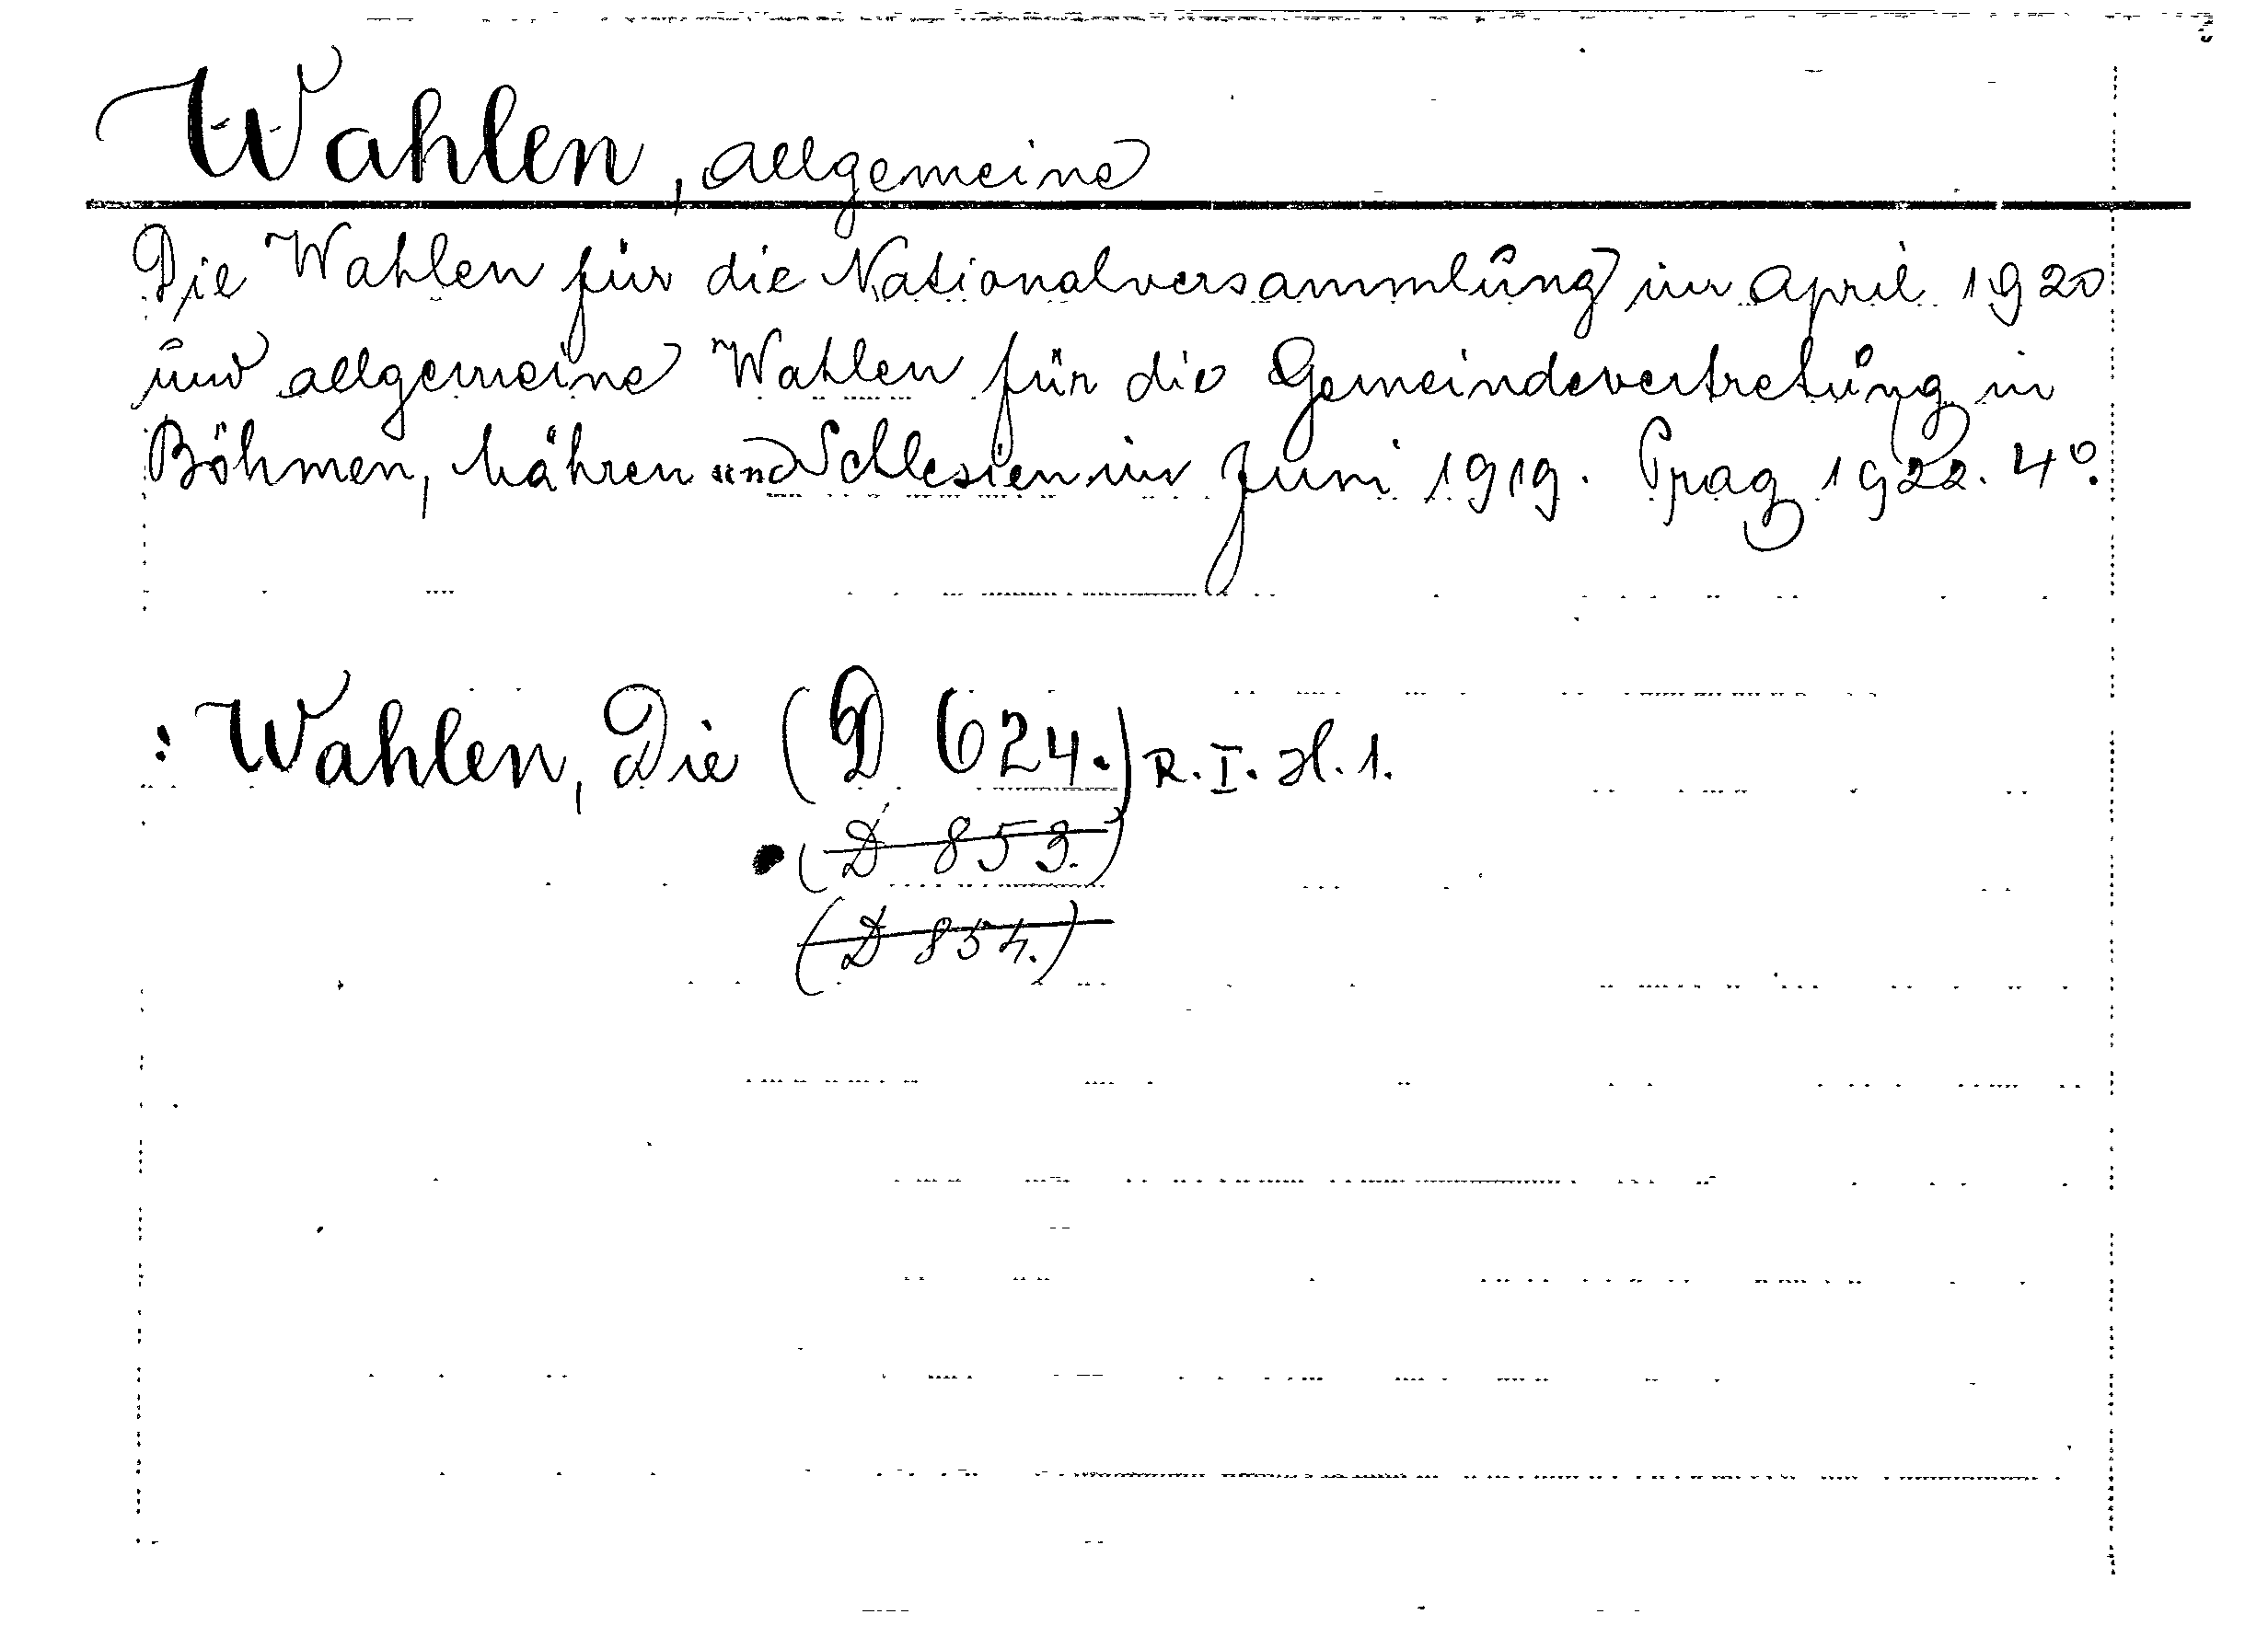 Wahlen, allgemeine
Die Wahlen für die Nationalversammlung im April 1920
und allgemeine Wahlen für die Gemeindevertretung in
Böhmen, Mähren und Schlesien im Juni 1919. Prag 1922. 4°.
: Wahlen, Die (D 624.) R. I. H. 1.
(D 853.)
(D 854.)